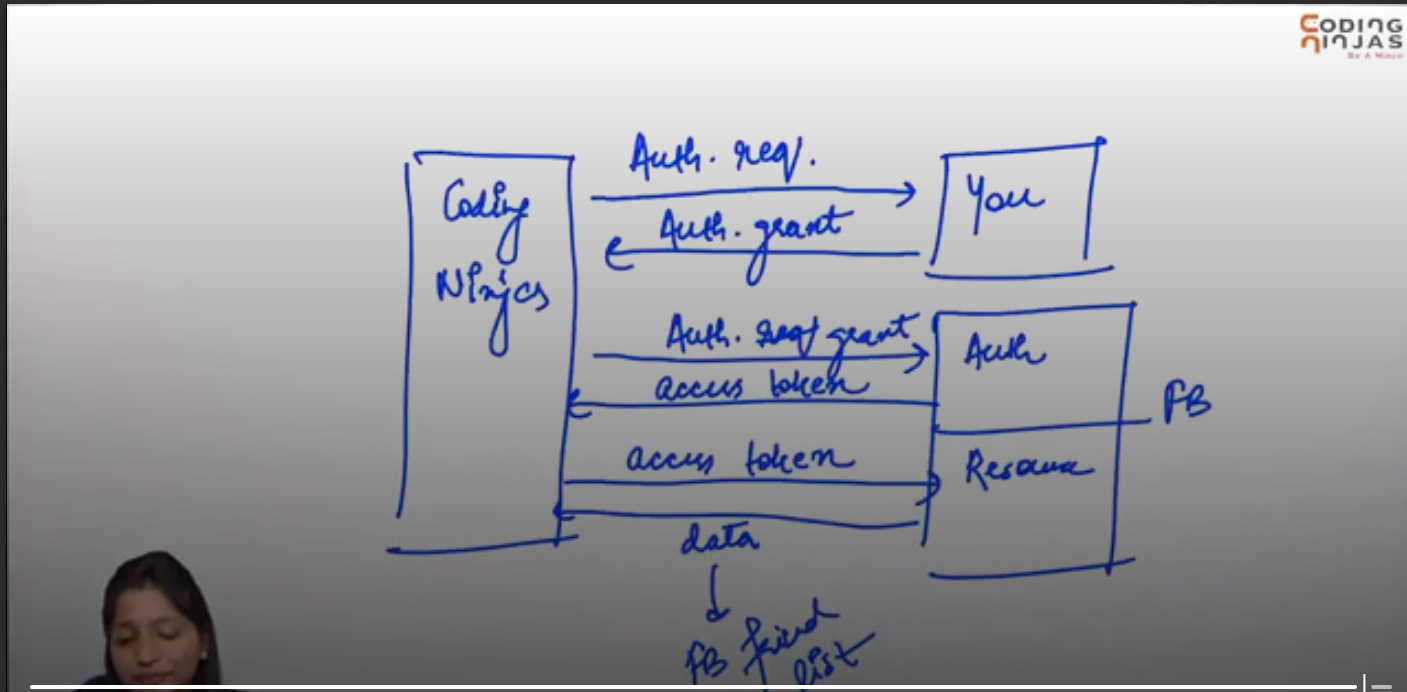 CODING
NINJAS
Be A Ninja!
Auth. req.
Coding
Ninjas
You
Auth. grant
Auth. req grant
Auth
access token
FB
access token
Resource
data
FB friend
list